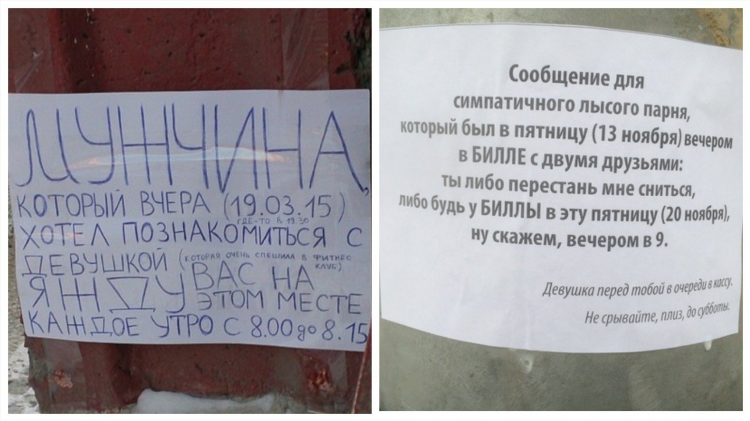 МУЖЧИНА,
КОТОРЫЙ ВЧЕРА (19.03.15)
ГДЕ-ТО В 19.30
ХОТЕЛ ПОЗНАКОМИТЬСЯ С
ДЕВУШКОЙ (КОТОРАЯ ОЧЕНЬ СПЕШИЛА В ФИТНЕС КЛУБ)
Я ЖДУ ВАС НА
ЭТОМ МЕСТЕ
КАЖДОЕ УТРО С 8.00 до 8.15
Сообщение для
симпатичного лысого парня,
который был в пятницу (13 ноября) вечером
в БИЛЛЕ с двумя друзьями:
ты либо перестань мне сниться,
либо будь у БИЛЛЫ в эту пятницу (20 ноября),
ну скажем, вечером в 9.
Девушка перед тобой в очереди в кассу.
Не срывайте, плиз, до субботы.